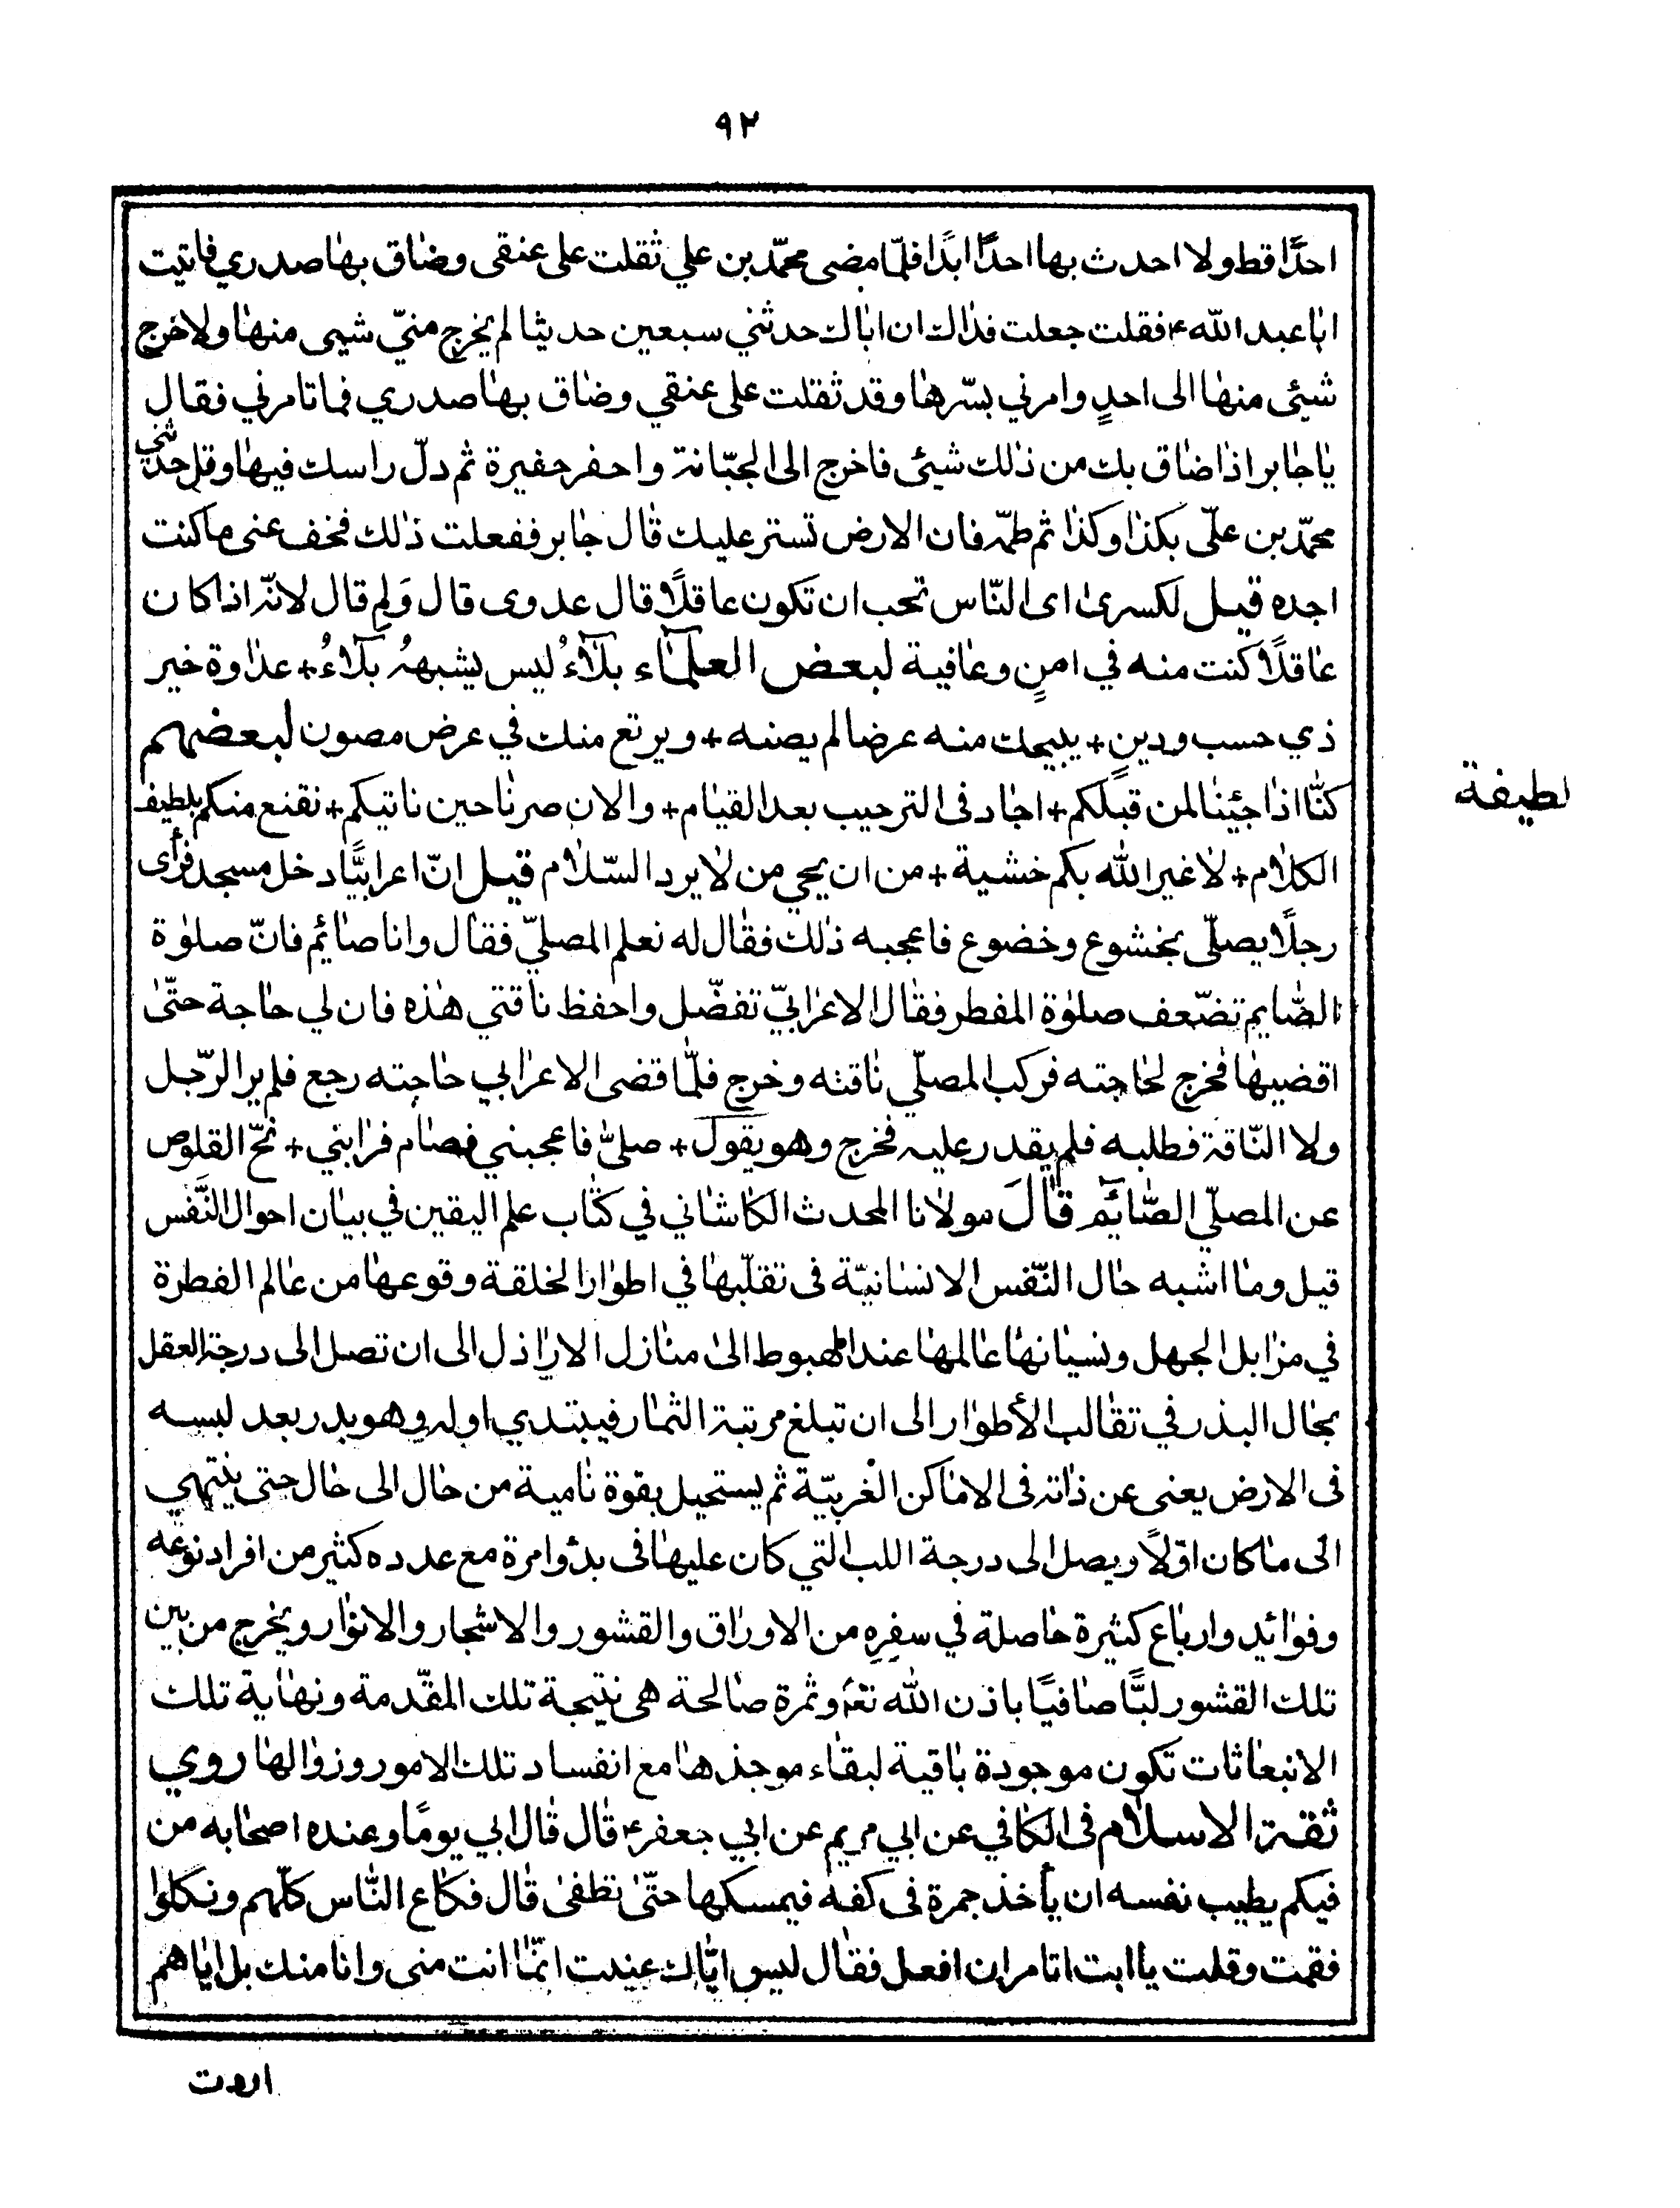 ٩٢
احدًا قط ولا احدث بها احدًا ابدًا فلمّا مضى محمّد بن علي ثقلت على عنقى وضاق بها صدري فاتيت
ابا عبد الله ع فقلت جعلت فداك ان اباك حدثني سبعين حديثا لم يخرج منيّ شيى منها ولا خرج
شيئى منها الى احدٍ وامرني بسّرها وقد ثقلت على عنقي وضاق بها صدري فما تامرني فقال
يا جابر اذا ضاق بك من ذلك شيئى فاخرج الى الجبّانة واحفر حفيرة ثم دلّ راسك فيها وقل حدثني
محمّد بن علّى بكذا وكذا ثم طمّه فان الارض تستر عليك قال جابر ففعلت ذلك فخف عنى ما كنت
اجده قيل لكسرى اى النّاس تحب ان تكون عاقلًا قال عدوى قال وَلِم قال لانّه اذا كان
عاقلًا كنت منه في امنٍ وعافية لبعض العلمآء بلآءُ ليس يشبههُ بلآءُ + عداوة خير
ذي حسب ودينٍ + يبيحك منه عرضا لم يصنه + ويرتع منك في عرض مصون لبعضهم
كنّا اذا جئينا لمن قبلكم + اجاد فى الترحيب بعد القيام + والان صرنا حين ناتيكم + نقنع منكم بلطيف
لطيفة
الكلام + لا غير الله بكم خشية + من ان يجي من لا يرد السّلام قيل انّ اعرابيًّا دخل مسجد فرأى
رجلًا يصلّى بخشوع وخضوع فاعجبه ذلك فقال له نعلم المصليّ فقال وانا صائيم فانّ صلوة
الصّايم تضّعف صلوة المفطر فقال الاعرابيّ تفضّل واحفظ ناقتي هذه فان لي حاجة حتّى
اقضيها فخرج لحاجته فركب المصلّي ناقته وخرج فلمّا قضى الاعرابي حاجته رجع فلم ير الرّجل
ولا النّاقة فطلبه فلم يقدر عليه فخرج وهو يقول + صلىّ فاعجبني فصام فرابني + نحّ القلوص
عن المصلّي الصّائيم قالَ مولانا المحدث الكاشاني في كتاب علم اليقين في بيان احوال النَّفس
قيل وما اشبه حال النّفس الانسانيّة فى تقلّبها في اطوار الخلقة وقوعها من عالم الفطرة
في مزابل الجهل ونسيانها عالمها عند الهبوط الى منازل الاراذل الى ان تصل الى درجة العقل
بحال البذر في تقالب الأطوار الى ان تبلغ مرتبة الثمار فيبتدي اوله وهو بذر بعد لبسه
فى الارض يعنى عن ذاته فى الاماكن الغربيّة ثم يستحيل بقوة نامية من حال الى حال حتى ينتهي
الى ما كان اوّلاً ويصل الى درجة اللب التي كان عليها فى بدؤ وامرة مع عدده كثير من افراد نوعه
وفوائد وارباع كثيرة حاصلة في سفرِهِ من الاوراق والقشور والاشجار والانوار ويخرج من بين
تلك القشور لبًّا صافيًا باذن الله تعۀ وثمرة صالحة هى نتيجة تلك المقّدمة ونهاية تلك
الانبعاثات تكون موجودة باقية لبقاء موجذها مع انفساد تلك الامور وزوالها روي
ثقة الاسلام فى الكافي عن ابي مريم عن ابي جعفر ع قال قال ابي يومًا وعنده اصحابه من
فيكم يطيب نفسه ان يأخذ جمرة فى كفه فيمسكها حتّى تطفئ قال فكاع النّاس كلّهم ونكلوا
فقمت وقلت يا ابت اتامر ان افعل فقال ليس ايّاك عينت انّما انت منى وانا منك بل اياهم
اردت